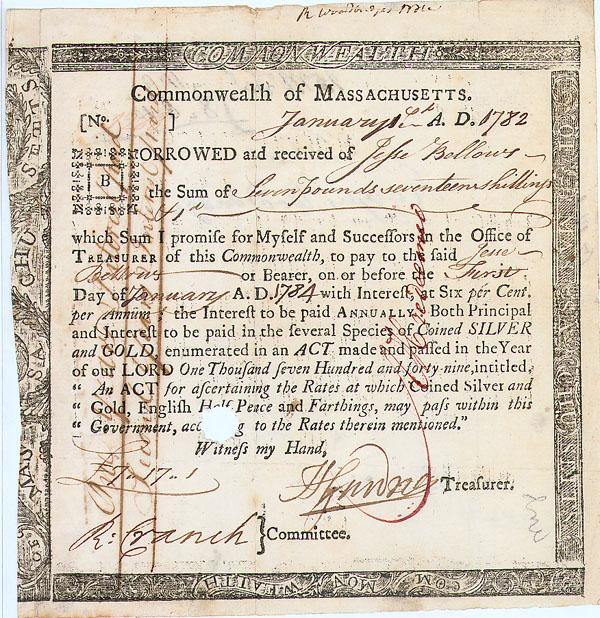 COMMONWEALTH
Commonwealth of MASSACHUSETTS.
[No. ]
January 1st A. D. 1782
BORROWED and received of Jesse Bellows
the Sum of Seven pounds seventeen shillings
& 1d
which Sum I promise for Myself and Successors in the Office of
TREASURER of this Commonwealth, to pay to the said Jesse
Bellows or Bearer, on or before the First
Day of January A. D. 1784 with Interest, at Six per Cent.
per Annum: the Interest to be paid ANNUALLY: Both Principal
and Interest to be paid in the several Species of Coined SILVER
and GOLD, enumerated in an ACT made and passed in the Year
of our LORD One Thousand seven Hundred and forty-nine, intitled,
“ An ACT for ascertaining the Rates at which Coined Silver and
“ Gold, English Half Pence and Farthings, may pass within this
“ Government, according to the Rates therein mentioned.”
Witness my Hand,
7.17.1
Treasurer.
R: Cranch } Committee.
COMMONWEALTH